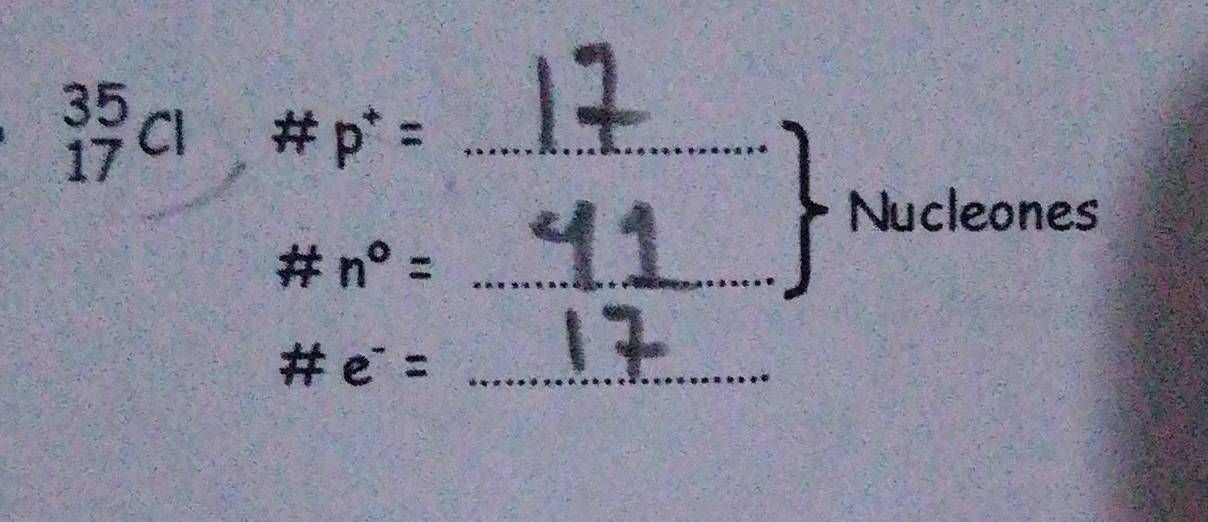 35
17 Cl # p⁺ = 17
# n⁰ = 41
# e⁻ = 17
Nucleones